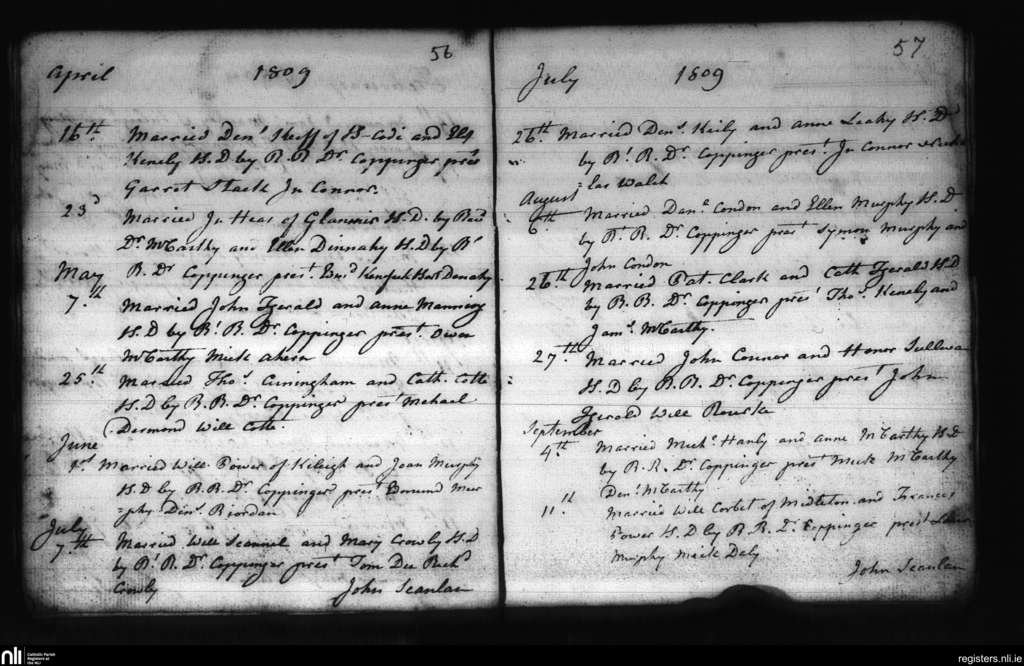 56
April 1809
16th Married Denˢ Keeff of B-Codi and
Kenely H.D by R.R Dr Coppinger presᵗ
Garret Stack Jn Connor.
23d Married Jn Hear of H.D. by Revd
Dr McCarthy and Ellen Dinnahy H.D by Rᵗ
May R. Dr Coppinger presᵗ
7.th Married John Fgerald and Anne Manning
H.D by Rᵗ R. Dr Coppinger presᵗ Owen
McCarthy Mick Ahern
25.th Married Thoˢ Cuningham and Cath. Cotts
H.D by R.R. Dr Coppinger presᵗ Michael
Dermond Will Cotts.
June
1st Married Will Power of Kileigh and Joan Murphy
H.D by R.R. Dr Coppinger presᵗ Edmund Mur
=phy Denˢ Riordan
July
7th Married Will Scannel and Mary Crowly H.D
by Rᵗ R. Dr Coppinger presᵗ Tom Dee Richd
Crowly John Scanlan
57
July 1809
26th Married Denˢ Keily and Anne Leahy H.D
by Rᵗ R. Dr Coppinger presᵗ Jn Connor Nicho
=las Walsh
August
6th Married Danˡ Condon and Ellen Murphy H.D
by Rᵗ R. Dr Coppinger presᵗ Symon Murphy and
John Condon
26th Married Pat. Clark and Cath Fgerald H.D
by R.R. Dr Coppinger presᵗ Thoˢ Kenely and
Jamˢ McCarthy.
27.th Married John Connor and Honor Sullivan
H.D by R.R. Dr Coppinger presᵗ John
Fgerald Will Rourke
September
4.th Married Michˡ Hanly and Anne McCarthy H.D
by R.R. Dr Coppinger presᵗ Mick McCarthy
Denˢ McCarthy
11.th Married Will Corbet of Midleton and Frances
Power H.D by R.R. Dr Coppinger presᵗ
Murphy Mick Daly
John Scanlan
nli Catholic Parish
Registers at
the NLI
registers.nli.ie